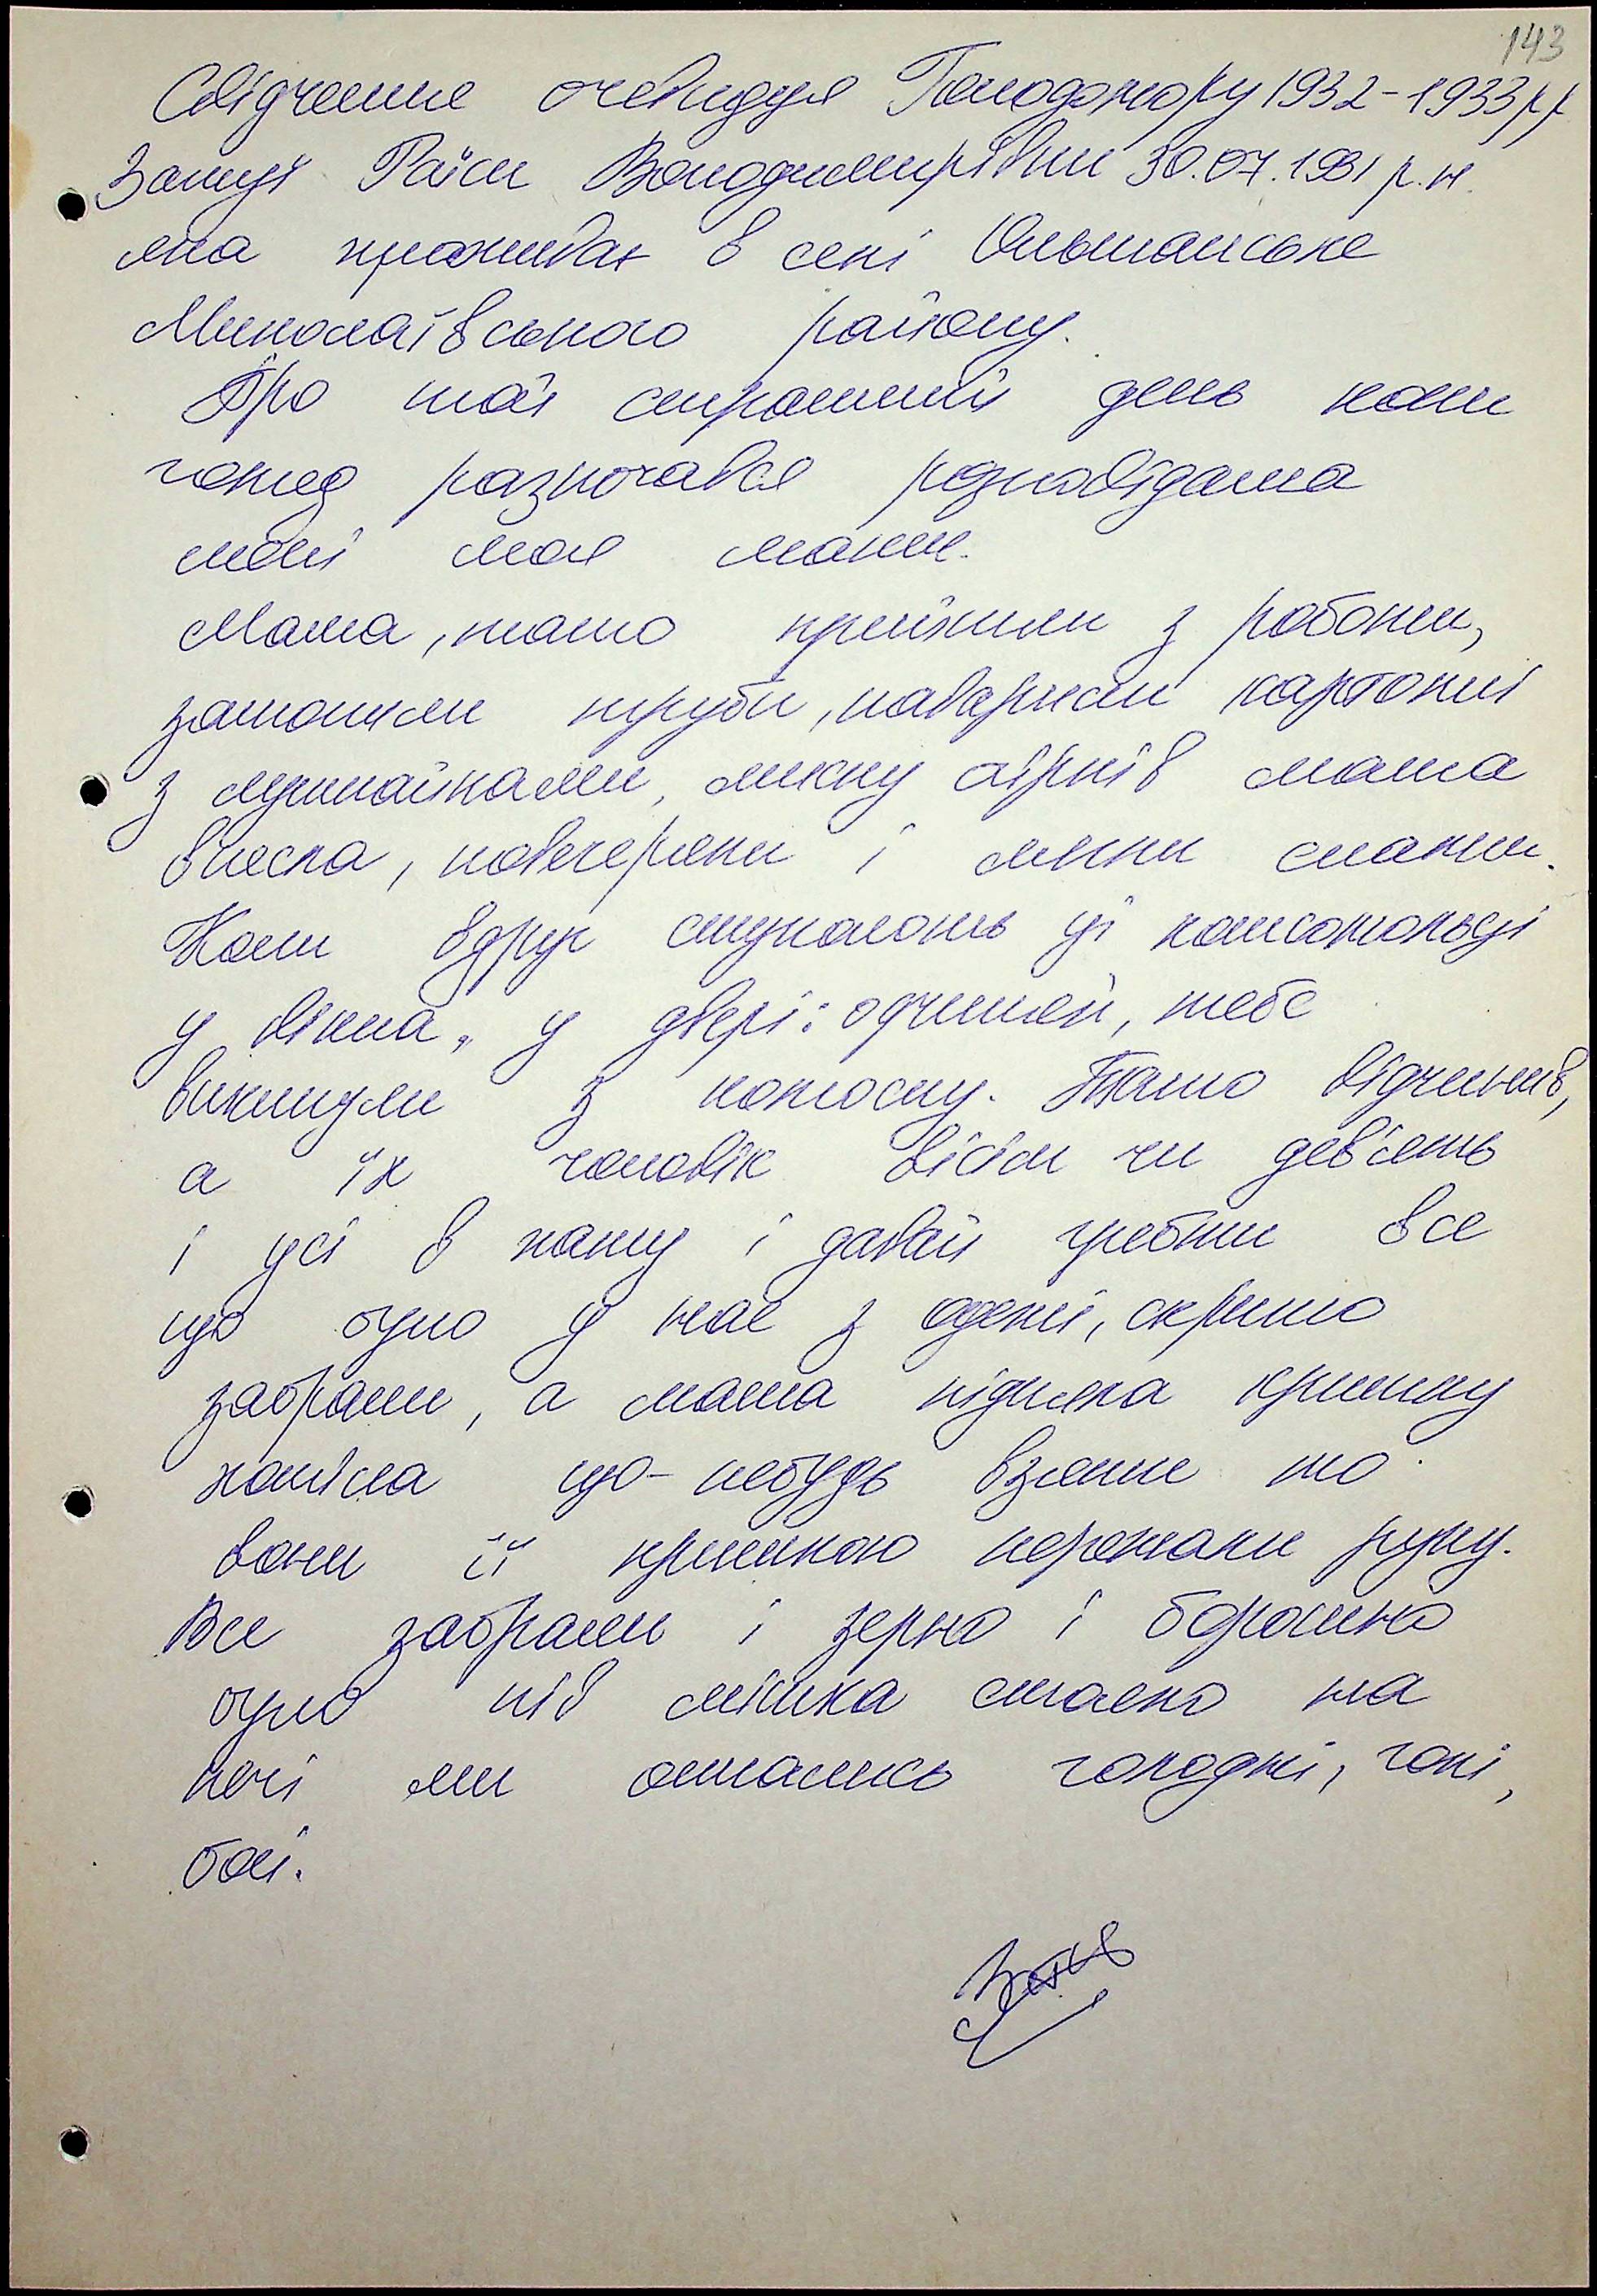 143
Свідчення очевидця Голодомору 1932-1933рр
Заїця Раїси Володимирівни 30.07.1931 р.н.
яка проживає в селі Ольшанське
Миколаївського району.
Про той страшний день коли
голод разпочався розповідала
мені моя мати.
Мама, тато прийшли з роботи,
затопили грубу, наварили картоплі
з лушпайками, миску огірків мама
внесла, повечеряли і лягли спати.
Коли вдруг стукають ці комсомольці
у вікна, у двері: одчиняй, тебе
викинули з колгоспу. Тато відчинив,
а їх чоловік вісім чи дев'ять
і усі в хату і давай гребти все
що було у нас з одежі, скриню
забрали, а мама підняла кришку
хотіла що-небудь взяти то
вони її кришкою пережали руку.
Все забрали і зерно і борошно
було пів мішка стояло на
печі ми остались голодні, голі,
босі.